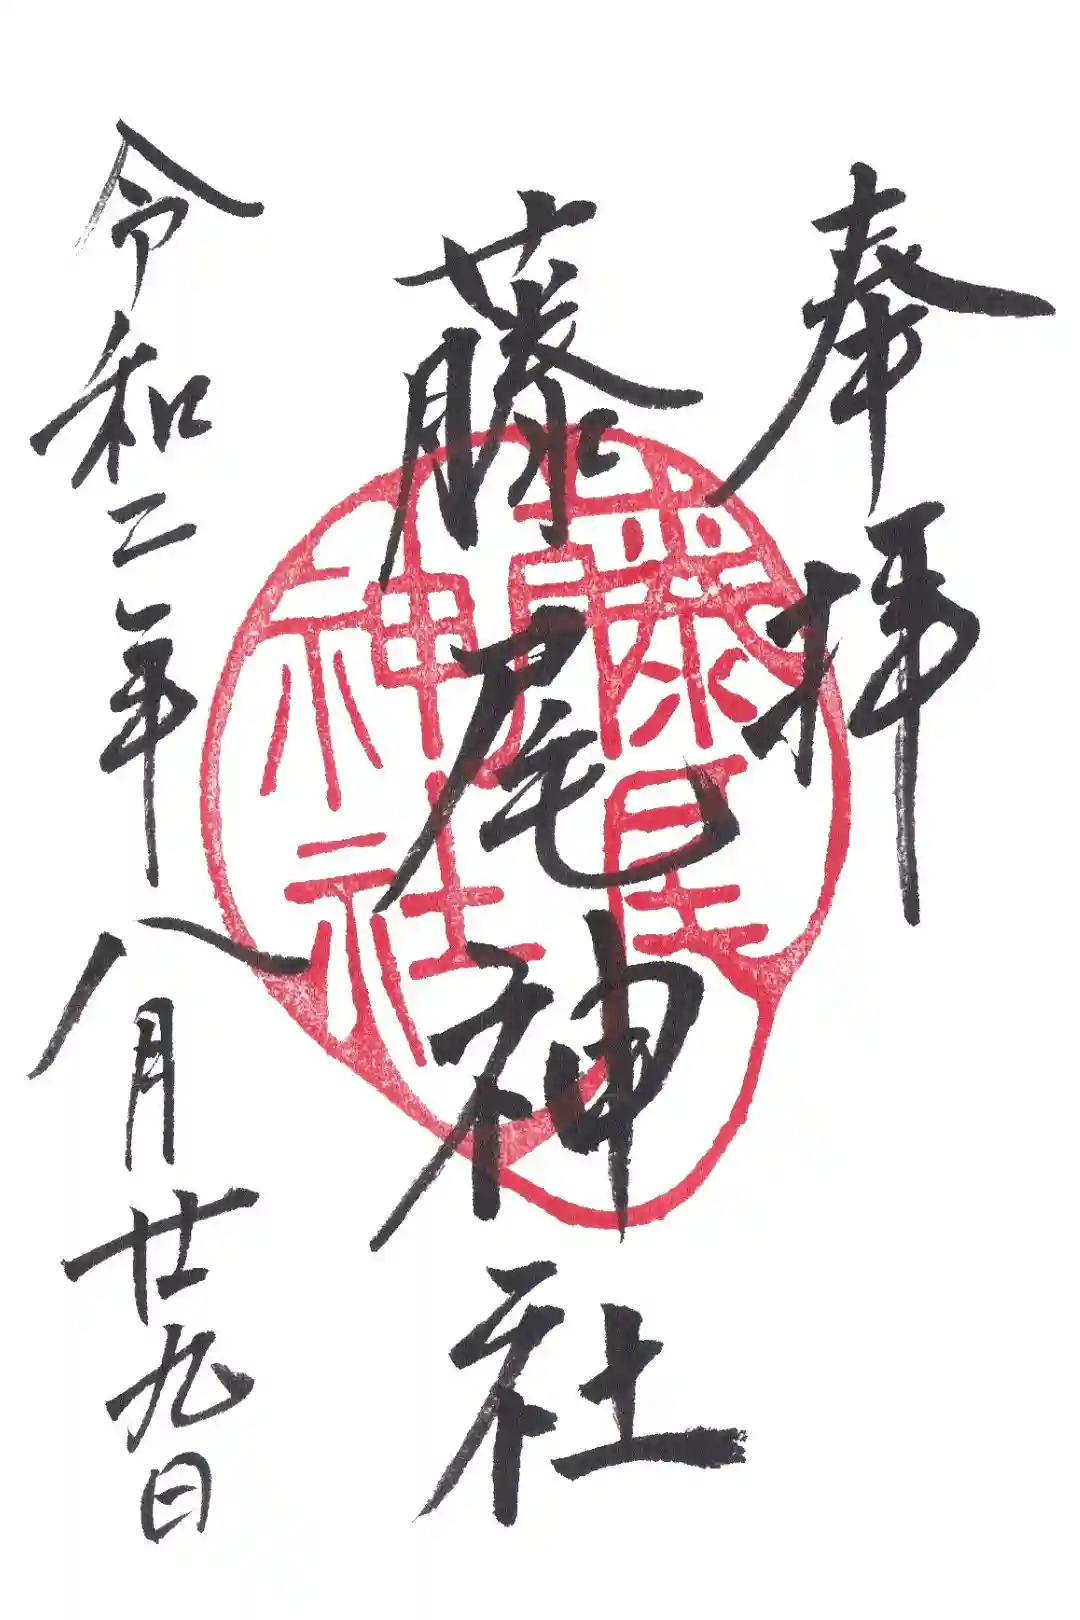 奉拝
藤尾神社
令和二年八月廿九日
藤尾
神社